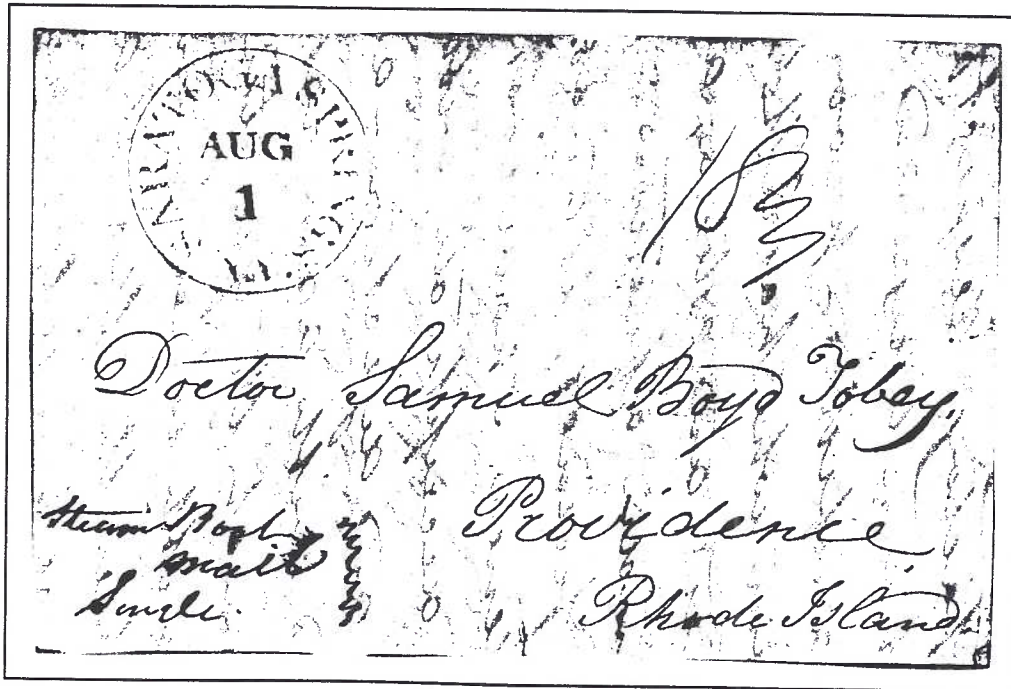 SARATOGA SPRINGS
AUG
1
N.Y.
Doctor Samuel Boyd Tobey,
Providence
Rhode Island
Steam Boat
mail
Single.